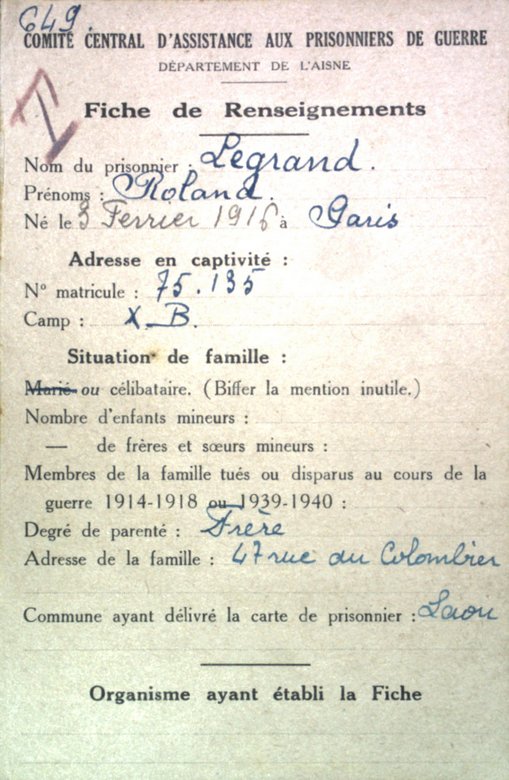 649.
COMITÉ CENTRAL D'ASSISTANCE AUX PRISONNIERS DE GUERRE
DÉPARTEMENT DE L'AISNE
Fiche de Renseignements
Nom du prisonnier : Legrand.
Prénoms : Roland.
Né le 3 Ferrier 1916 à Paris
Adresse en captivité :
N° matricule : 75.135
Camp : X B.
Situation de famille :
Marié ou célibataire. (Biffer la mention inutile.)
Nombre d'enfants mineurs :
— de frères et sœurs mineurs :
Membres de la famille tués ou disparus au cours de la
guerre 1914-1918 ou 1939-1940 :
Degré de parenté : Frère
Adresse de la famille : 47 rue du Colombier
Commune ayant délivré la carte de prisonnier : Laon
Organisme ayant établi la Fiche